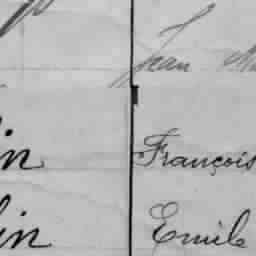 Jean
in François
in Emile